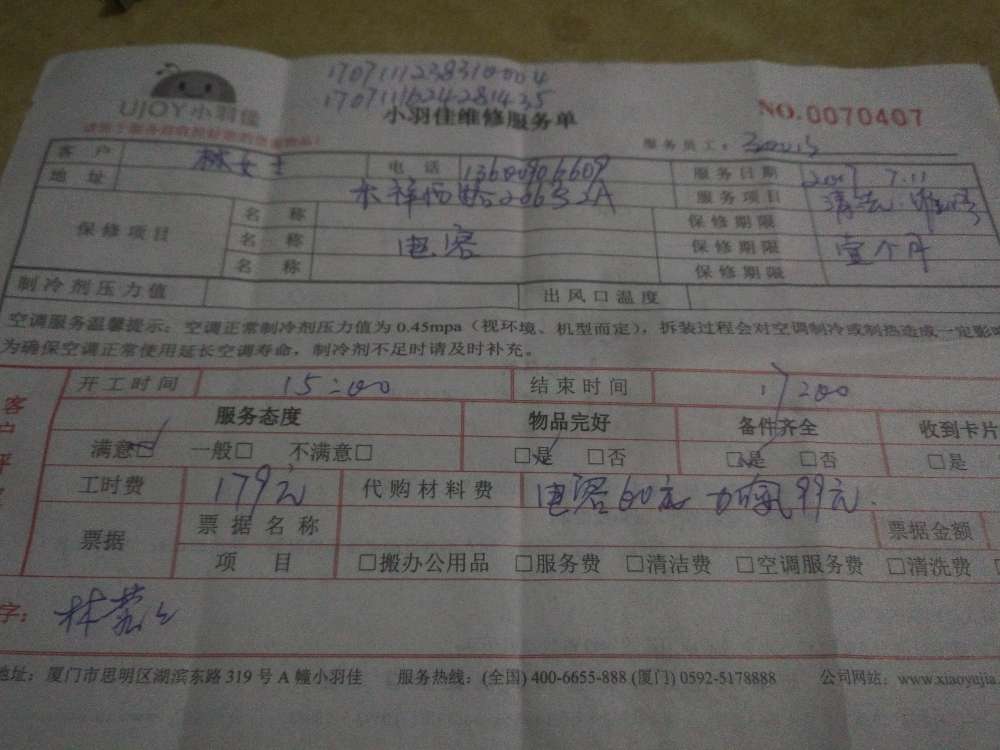 1707111238310004
17071116242814 35
UJOY小羽佳
小羽佳维修服务单
NO.0070407
服务员工:
客户 林女士 电话 13600906609 服务日期 2017 7.11
地址 服务项目 清洗
保修项目 名称 保修期限
名称 电容 保修期限 壹个月
名称 保修期限
制冷剂压力值 出风口温度
空调服务温馨提示:空调正常制冷剂压力值为0.45mpa(视环境、机型而定),拆装过程会对空调制冷或制热造成一定影
为确保空调正常使用延长空调寿命,制冷剂不足时请及时补充。
开工时间 15:00 结束时间 17:00
客户评
服务态度 物品完好 备件齐全 收到卡片
满意□ 一般□ 不满意□ □是 □否 □是 □否 □是
工时费 179元 代购材料费 电容60元 加氟99元.
票据 票据名称 票据金额
项目 □搬办公用品 □服务费 □清洁费 □空调服务费 □清洗费
字: 林
地址:厦门市思明区湖滨东路319号A幢小羽佳 服务热线:(全国)400-6655-888 (厦门)0592-5178888 公司网站:www.xiaoyujia.